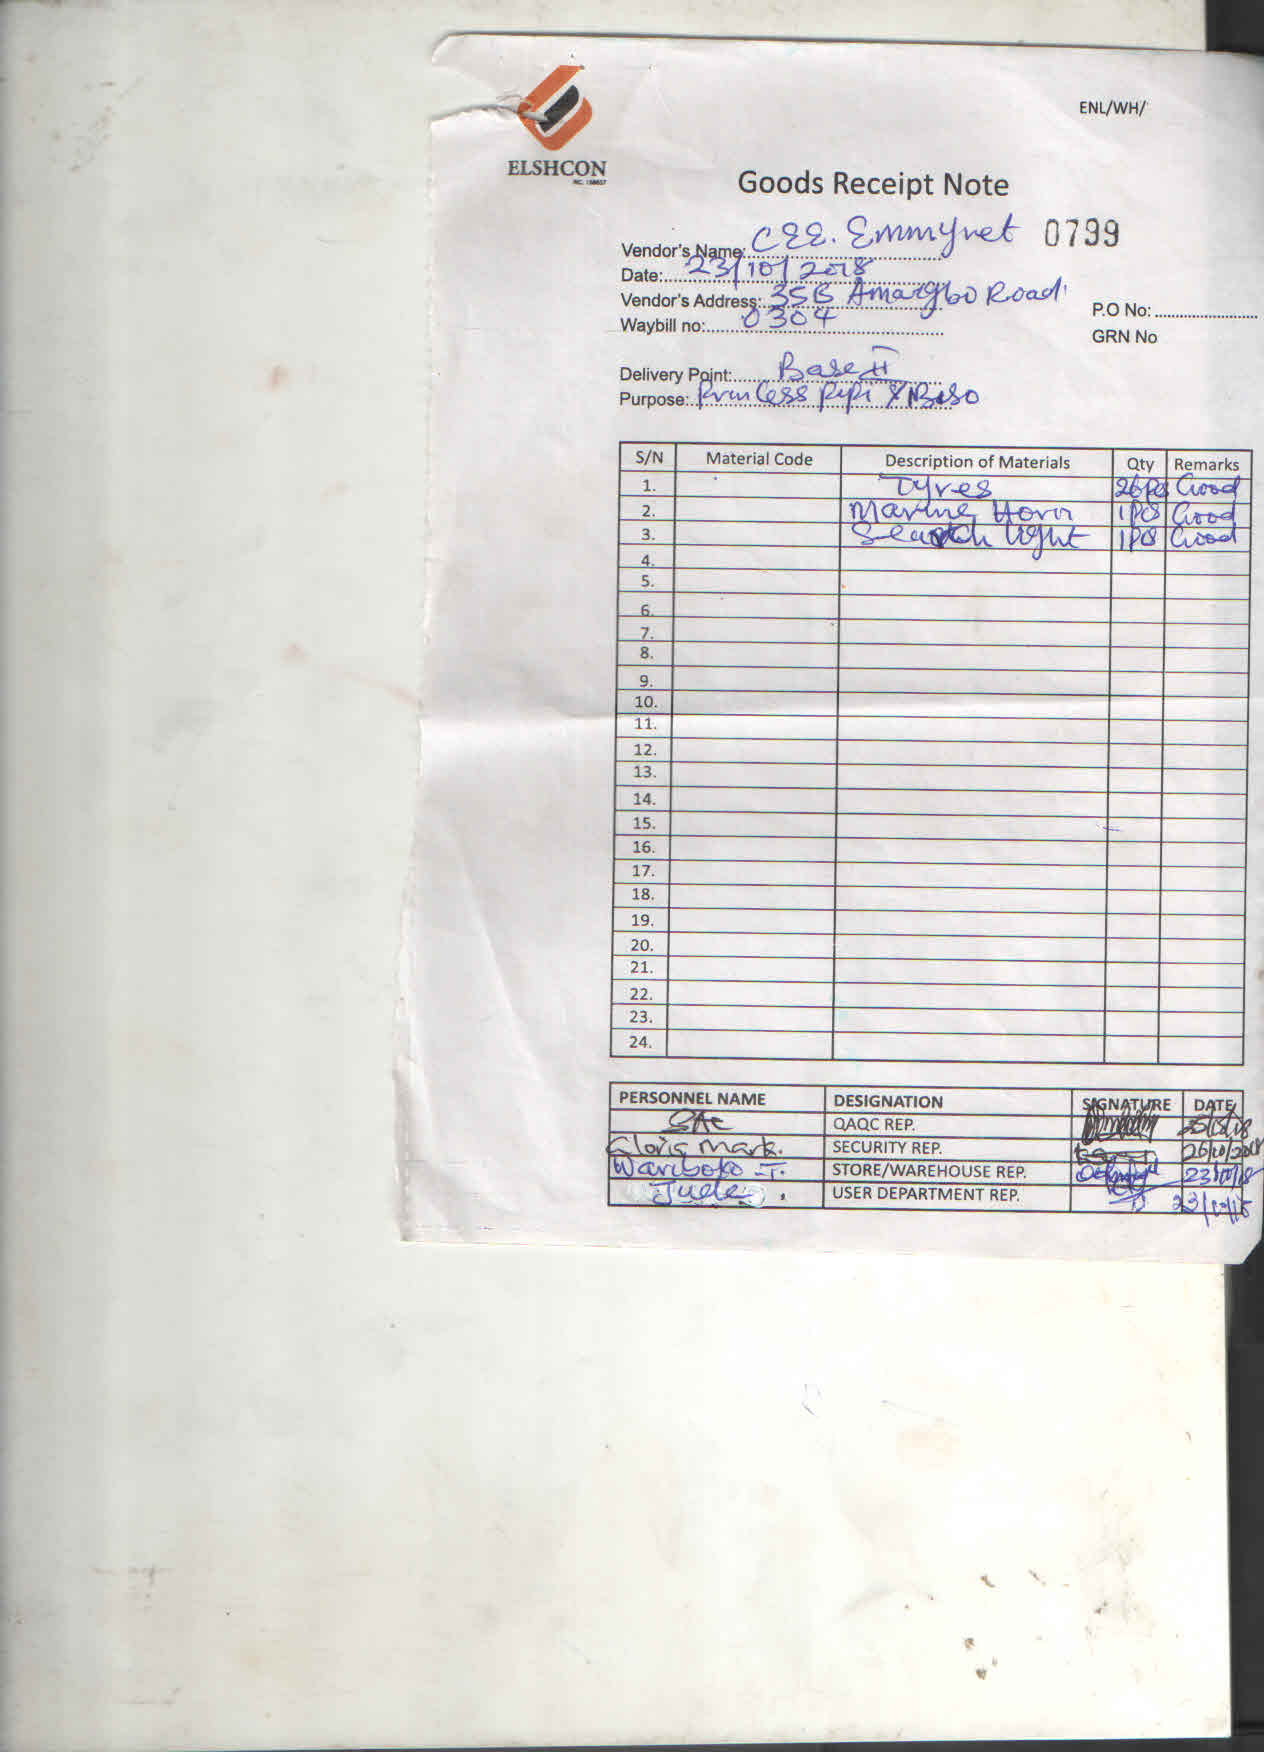 ENL/WH/
ELSHCON
RC. 158657
Goods Receipt Note
0799
Vendor's Name: CEE. Emmynet
Date: 23/10/2018
Vendor's Address: 35B Amaigbo Road
Waybill no: 0304
P.O No:
GRN No
Delivery Point: Base II
Purpose: Princess Pepi &
S/N Material Code Description of Materials Qty Remarks
1. Tyres 26pcs Good
2. Marine Horn 1pcs Good
3. Search light 1pcs Good
4.
5.
6.
7.
8.
9.
10.
11.
12.
13.
14.
15.
16.
17.
18.
19.
20.
21.
22.
23.
24.
PERSONNEL NAME DESIGNATION SIGNATURE DATE
QAQC REP.
Gloria Mark. SECURITY REP. 26/10/2018
Wariboko T. STORE/WAREHOUSE REP. 23/10/18
Jude USER DEPARTMENT REP. 23/10/18